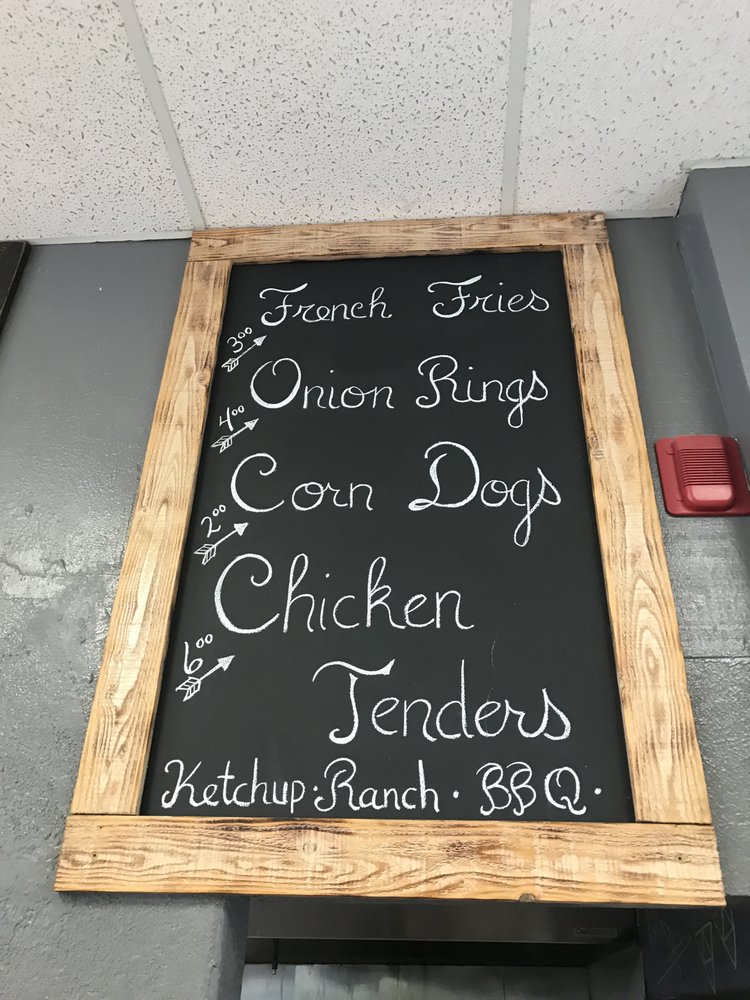 French Fries
3.00
Onion Rings
4.00
Corn Dogs
2.00
Chicken
6.00
Tenders
Ketchup · Ranch · BBQ ·